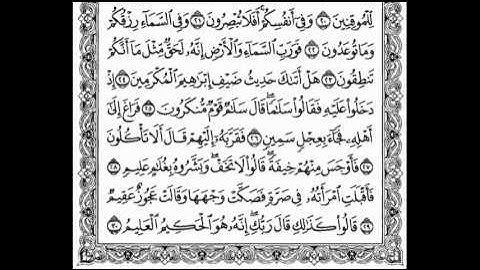 لِّلْمُوقِنِينَ ٢٠ وَفِىٓ أَنفُسِكُمْ ۚ أَفَلَا تُبْصِرُونَ ٢١ وَفِى ٱلسَّمَآءِ رِزْقُكُمْ
وَمَا تُوعَدُونَ ٢٢ فَوَرَبِّ ٱلسَّمَآءِ وَٱلْأَرْضِ إِنَّهُۥ لَحَقٌّ مِّثْلَ مَآ أَنَّكُمْ
تَنطِقُونَ ٢٣ هَلْ أَتَىٰكَ حَدِيثُ ضَيْفِ إِبْرَٰهِيمَ ٱلْمُكْرَمِينَ ٢٤ إِذْ
دَخَلُوا۟ عَلَيْهِ فَقَالُوا۟ سَلَٰمًا ۖ قَالَ سَلَٰمٌ قَوْمٌ مُّنكَرُونَ ٢٥ فَرَاغَ إِلَىٰٓ
أَهْلِهِۦ فَجَآءَ بِعِجْلٍ سَمِينٍ ٢٦ فَقَرَّبَهُۥٓ إِلَيْهِمْ قَالَ أَلَا تَأْكُلُونَ
٢٧ فَأَوْجَسَ مِنْهُمْ خِيفَةً ۖ قَالُوا۟ لَا تَخَفْ ۖ وَبَشَّرُوهُ بِغُلَٰمٍ عَلِيمٍ ٢٨
فَأَقْبَلَتِ ٱمْرَأَتُهُۥ فِى صَرَّةٍ فَصَكَّتْ وَجْهَهَا وَقَالَتْ عَجُوزٌ عَقِيمٌ
٢٩ قَالُوا۟ كَذَٰلِكِ قَالَ رَبُّكِ ۖ إِنَّهُۥ هُوَ ٱلْحَكِيمُ ٱلْعَلِيمُ ٣٠